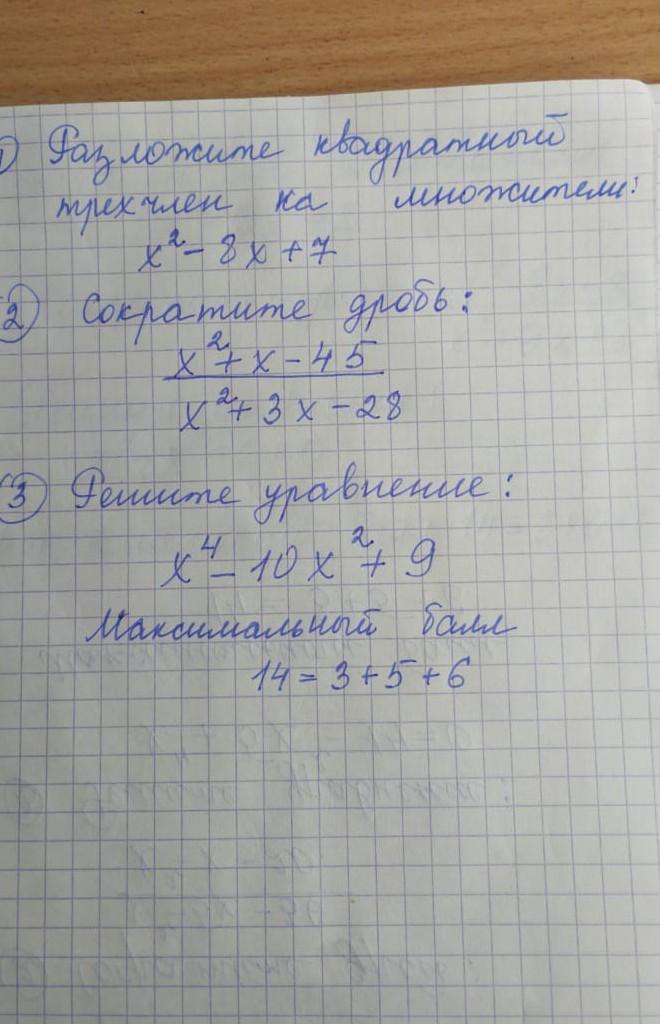 1) Разложите квадратный
трехчлен на множители:
x² - 8x + 7
2) Сократите дробь:
x² + x - 45
x² + 3x - 28
3) Решите уравнение:
x⁴ - 10x² + 9
Максимальный балл
14 = 3 + 5 + 6